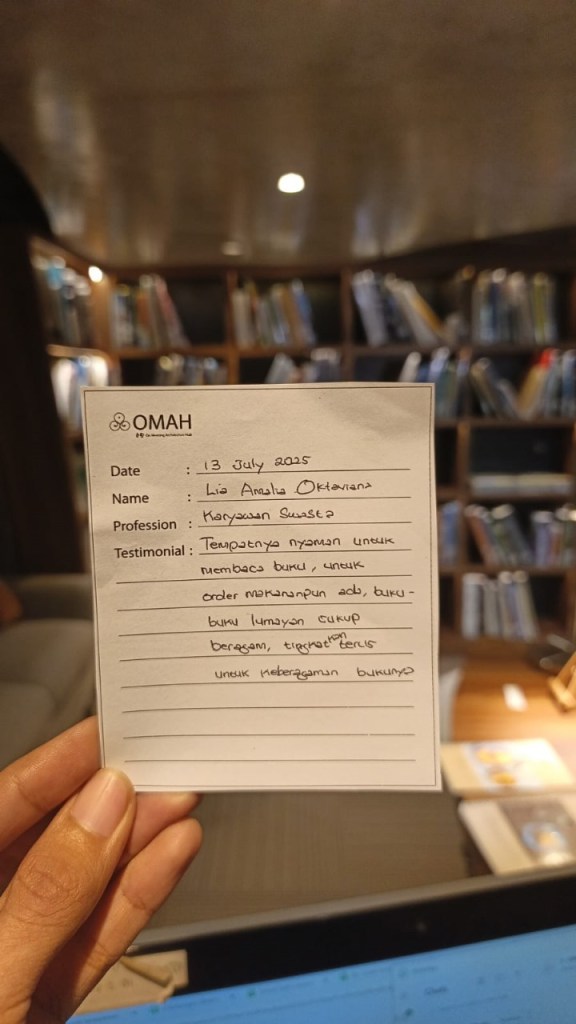 OMAH
Date : 13 July 2025
Name : Lia Amalia Oktaviana
Profession : Karyawan Swasta
Testimonial : Tempatnya nyaman untuk
membaca buku, untuk
order makananpun ada, buku -
buku lumayan cukup
beragam, tingkatkan terus
untuk keberagaman bukunya